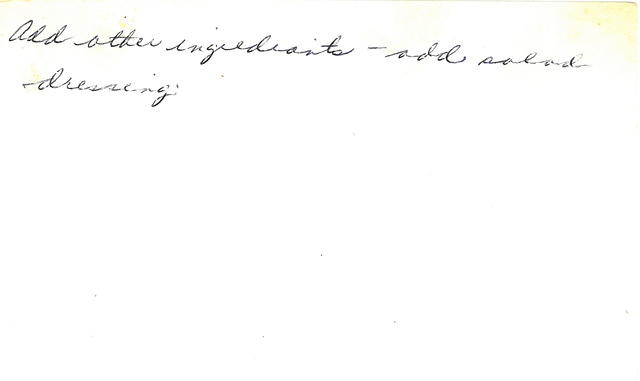 Add other ingredients - add salad
dressing.